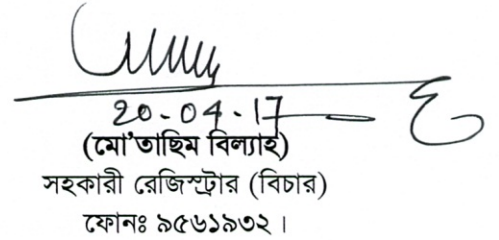 20-04-17
(মো'তাছিম বিল্যাহ)
সহকারী রেজিস্ট্রার (বিচার)
ফোনঃ ৯৫৬১৯৩২।